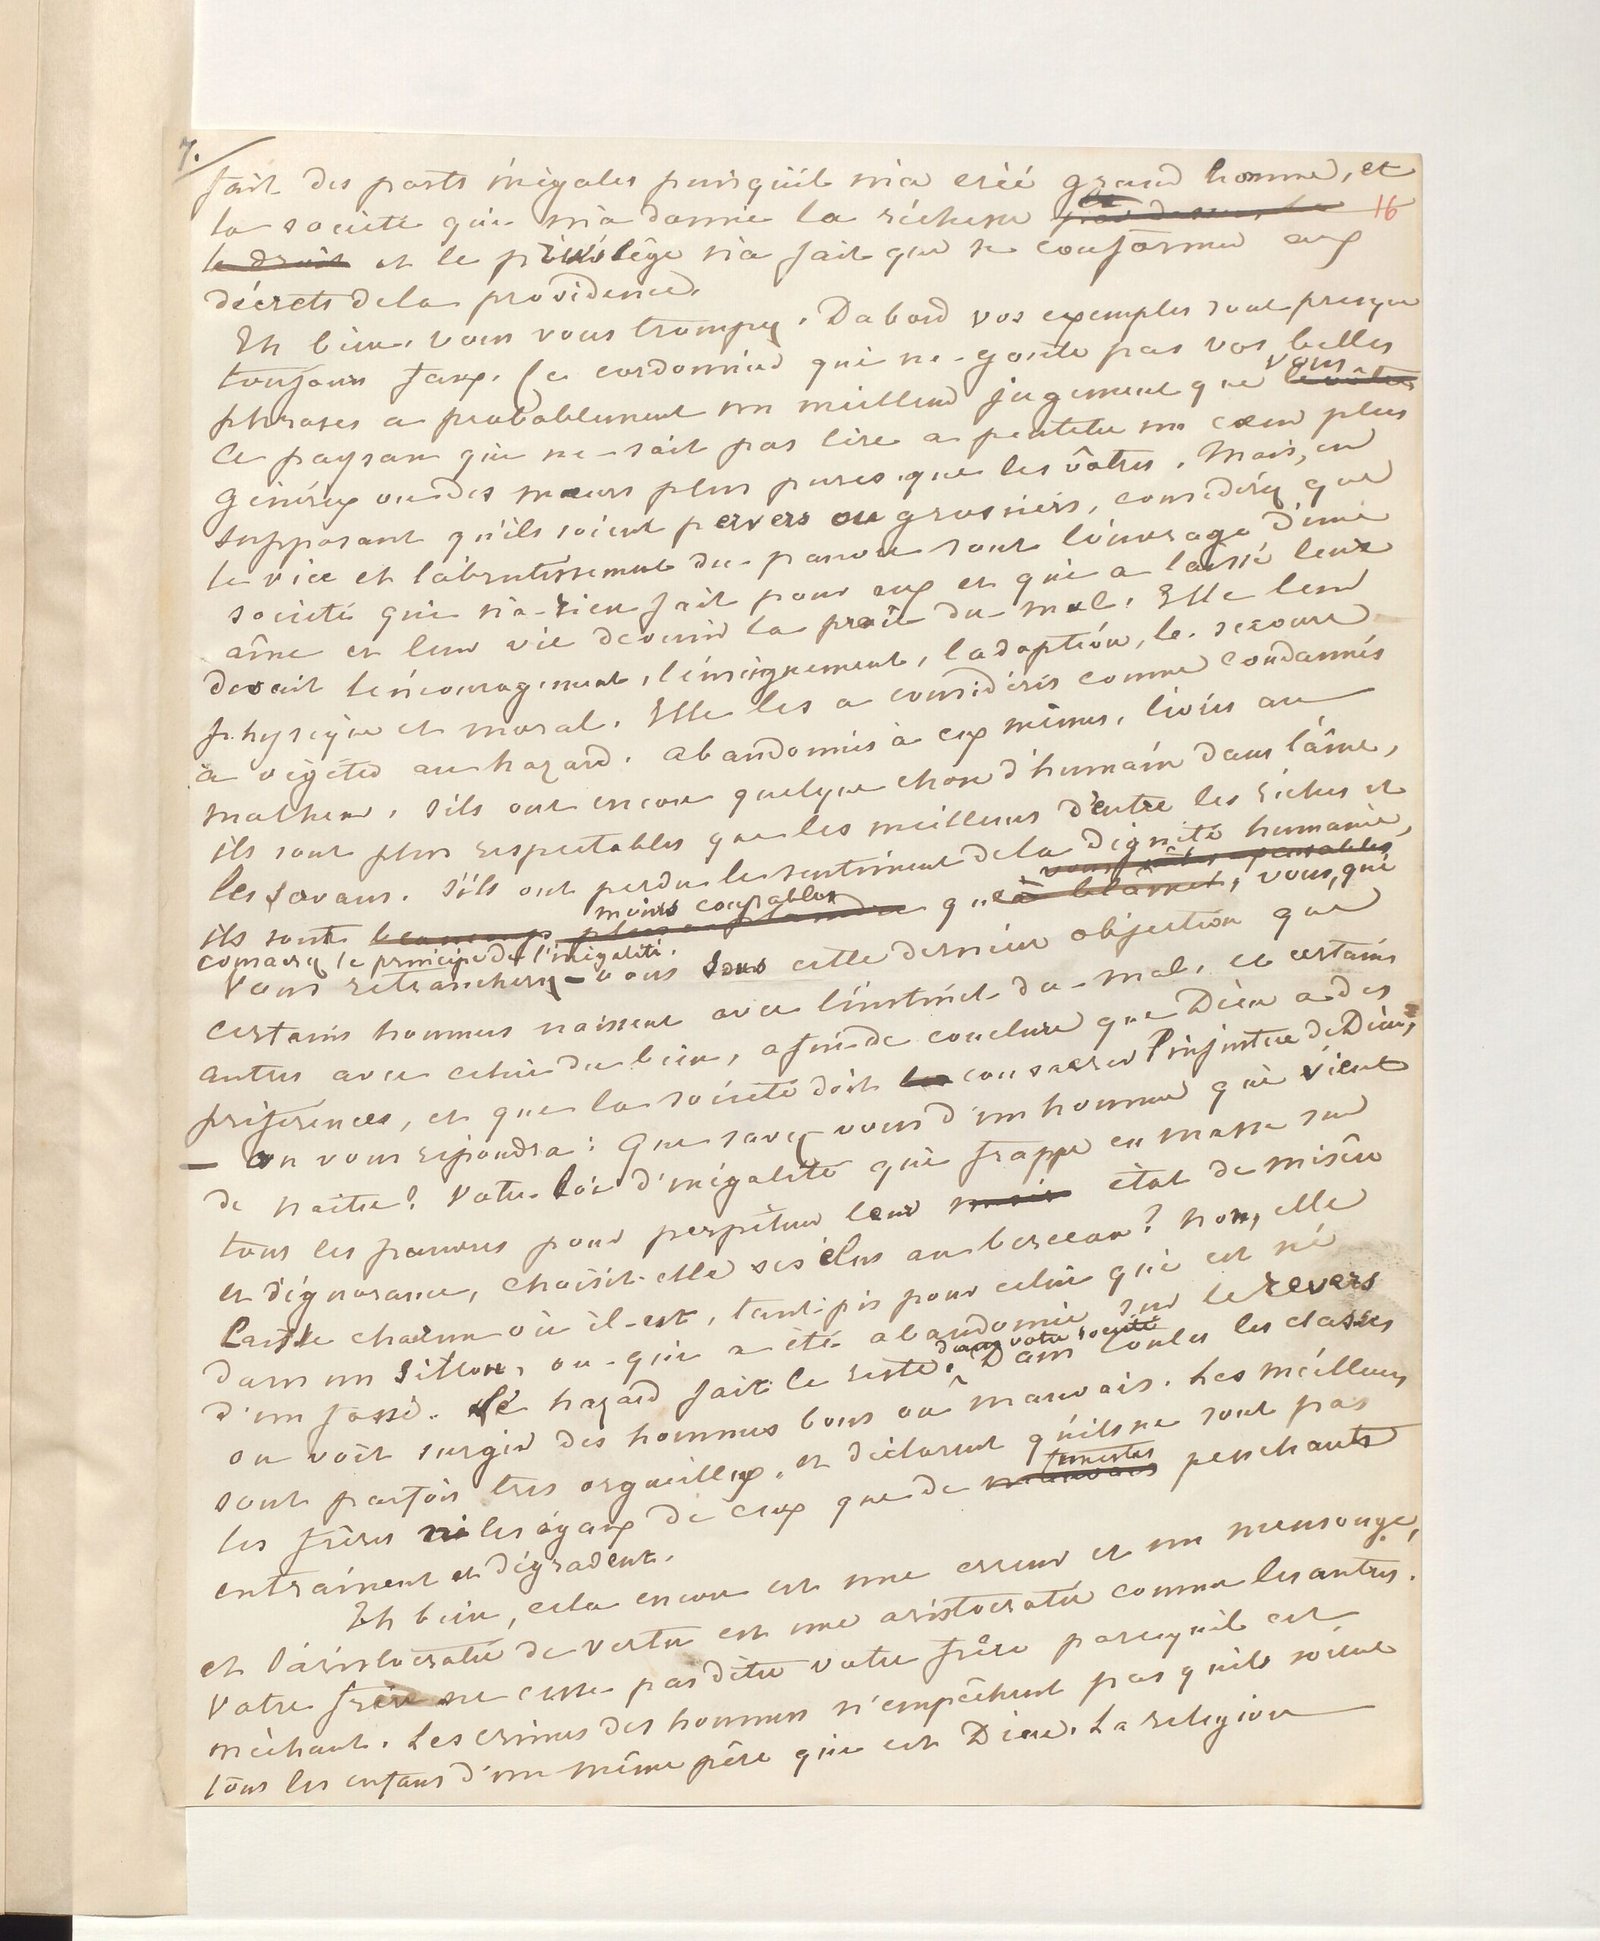 7.
fait des parts inégales puisqu'il m'a créé grand homme, et
la société qui m'a donné la richesse 16
le droit et le privilège n'a fait que se conformer aux
décrets de la providence.
Eh bien, vous vous trompez. Dabord vos exemples sont presque
toujours faux. Ce cordonnier qui ne goûte pas vos belles
phrases a probablement un meilleur jugement que vous
Ce paysan qui ne sait pas lire a peutetre un cœur plus
généreux ou des mœurs plus pures que les vôtres. Mais, en
supposant qu'ils soient pervers ou grossiers, considérez que
le vice et l'abrutissement du pauvre sont l'ouvrage d'une
société qui n'a rien fait pour eux et qui a laissé leur
âme et leur vie devenir la proie du mal. Elle leur
devait l'encouragement, l'enseignement, l'adoption, le secours
physique et moral. Elle les a considérés comme condamnés
à végéter au hazard. abandonnés à eux mêmes, livrés au
malheur, s'ils ont encore quelque chose d'humain dans l'âme,
ils sont plus respectables que les meilleurs d'entre les riches et
les savans. S'ils ont perdu le sentiment de la dignité humaine,
ils sont beaucoup plus moins coupables que vous, qui
consacrez le principe de l'inégalité.
Vous retrancherez-vous sous cette dernière objection que
certains hommes naissent avec l'instinct du mal, et certains
autres avec celui du bien, afin de conclure que Dieu a des
préférences, et que la société doit consacrer l'injustice de Dieu?
— On vous répondra: Que savez vous d'un homme qui vient
de naître? Votre loi d'inégalité qui frappe en masse sur
tous les pauvres pour perpétuer leur état de misère
et d'ignorance, choisit-elle ses élus au berceau? non, elle
laisse chacun où il est, tant pis pour celui qui est né
dans un sillon, ou qui a été abandonné sur le revers
d'un fossé. Le hazard fait le reste. Dans votre société Dans toutes les classes
on voit surgir des hommes bons ou mauvais. Les meilleurs
sont parfois très orgueilleux, et déclarent qu'ils ne sont pas
les frères ni les égaux de ceux que de funestes mauvais penchants
entraînent et dégradent.
Eh bien, cela encore est une erreur et un mensonge,
et l'aristocratie de vertu est une aristocratie comme les autres.
Votre frère ne cesse pas d'être votre frère parcequ'il est
méchant. Les crimes des hommes n'empêchent pas qu'ils soient
tous les enfans d'un même père qui est Dieu. La religion